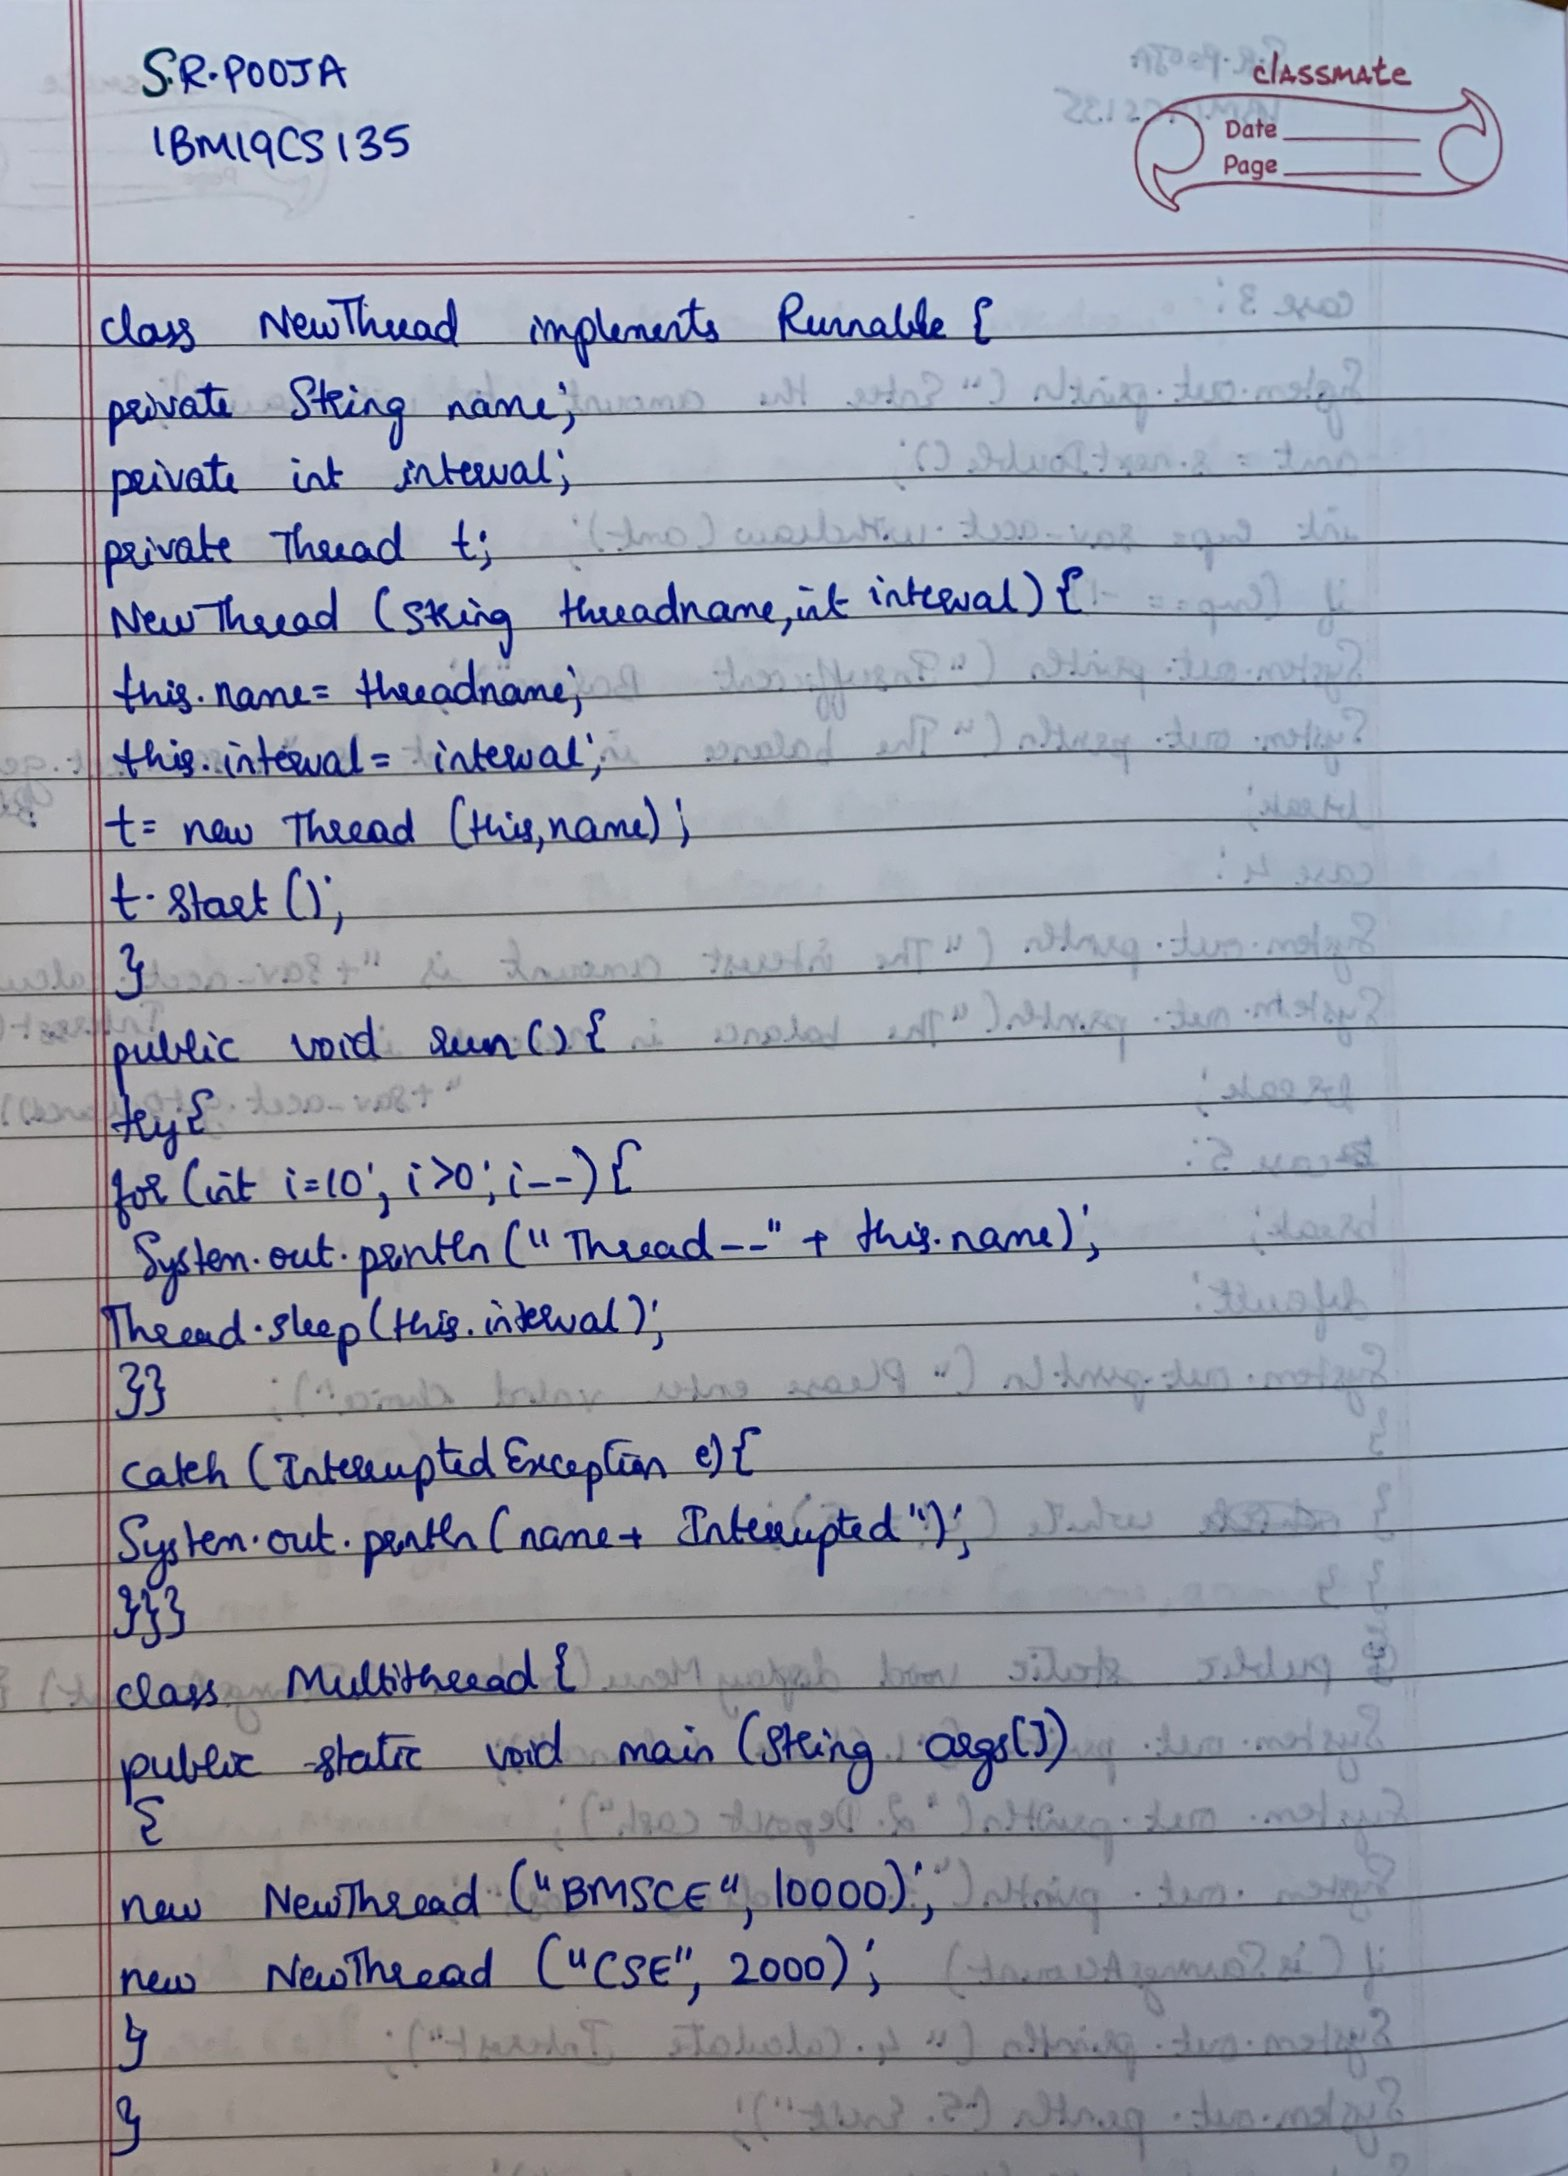 S.R.POOJA
1BM19CS135
classmate
Date
Page
class NewThread implements Runnable {
private String name;
private int interval;
private Thread t;
NewThread (String threadname, int interval) {
this.name= threadname;
this.interval= interval;
t= new Thread (this,name);
t.start();
}
public void run() {
try{
for (int i=10; i>0; i--) {
System.out.println ("Thread--" + this.name);
Thread.sleep(this.interval);
}}
catch (InterruptedException e) {
System.out.println (name+ Interrupted");
}}}
class Multithread {
public static void main (String args[])
{
new NewThread ("BMSCE", 10000);
new NewThread ("CSE", 2000);
}
}